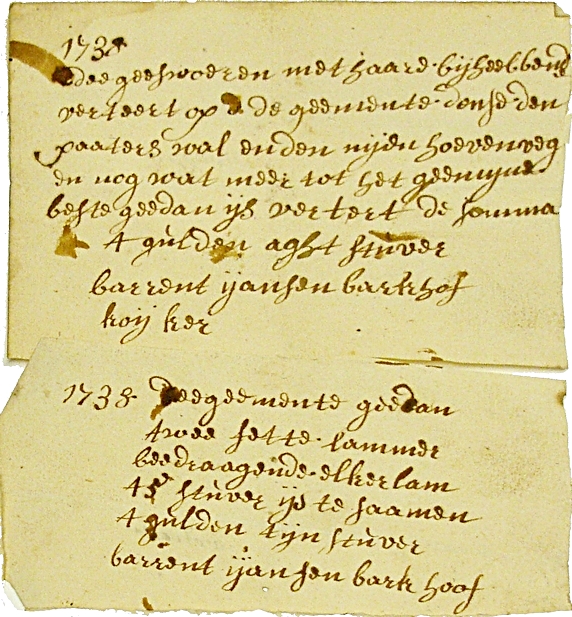 1738
dee geeswoeren met haare bijheebbend
verteert op de geemente donse den
paaters wal en den nijen hoevenweg
en nog wat meer tot het geemijne
beste geedan ijs vertert de somma
4 gulden aght stuver
barrent ijansen barkhof
koij ker
1738 deegeemente geedan
twee fette lammer
beedraagende elker lam
45 stuver ijs te saamen
4 gulden tijn stuver
barrent ijansen bark hoof